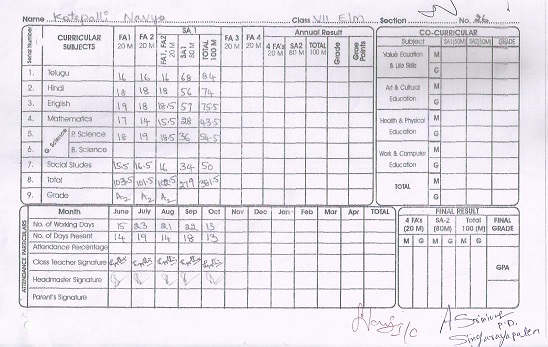 Name Katepalli Navya Class VII E/m Section No. 26
Serial Number CURRICULAR SUBJECTS FA1 20 M FA 2 20 M SA 1 FA1+FA2 20 M SA1 80 M TOTAL 100 M FA 3 20 M FA 4 20 M Annual Result 4 FA's 20 M SA2 80 M TOTAL 100 M Grade Grade Points
1. Telugu 16 16 16 68 84
2. Hindi 18 18 18 56 74
3. English 19 18 18.5 57 75.5
4. Mathematics 17 14 15.5 28 43.5
5. G. Science P. Science 18 19 18.5 36 54.5
6. B. Science
7. Social Studes 15.5 16.5 16 34 50
8. Total 103.5 101.5 102.5 279 381.5
9. Grade A2 A2 A2
CO-CURRICULAR
Subject SA1(50M) SA2(50M) GRADE
Value Ecuation & Life Skills M G
Art & Cultural Education M G
Health & Physical Education M G
Work & Computer Education M G
TOTAL M G
ATTENDANCE PARTICULARS
Month June July Aug Sep Oct Nov Dec Jan Feb Mar Apr TOTAL
No. of Working Days 15 23 21 22 13
No. of Days Present 14 19 14 18 13
Attendance Percentage
Class Teacher Signature
Headmaster Signature
Parent's Signature
FINAL RESULT
4 FA's (20 M) SA-2 (80M) Total 100 (M) FINAL GRADE
M G M G M G
GPA
A Srinivas
P.D.
Singarayapalem